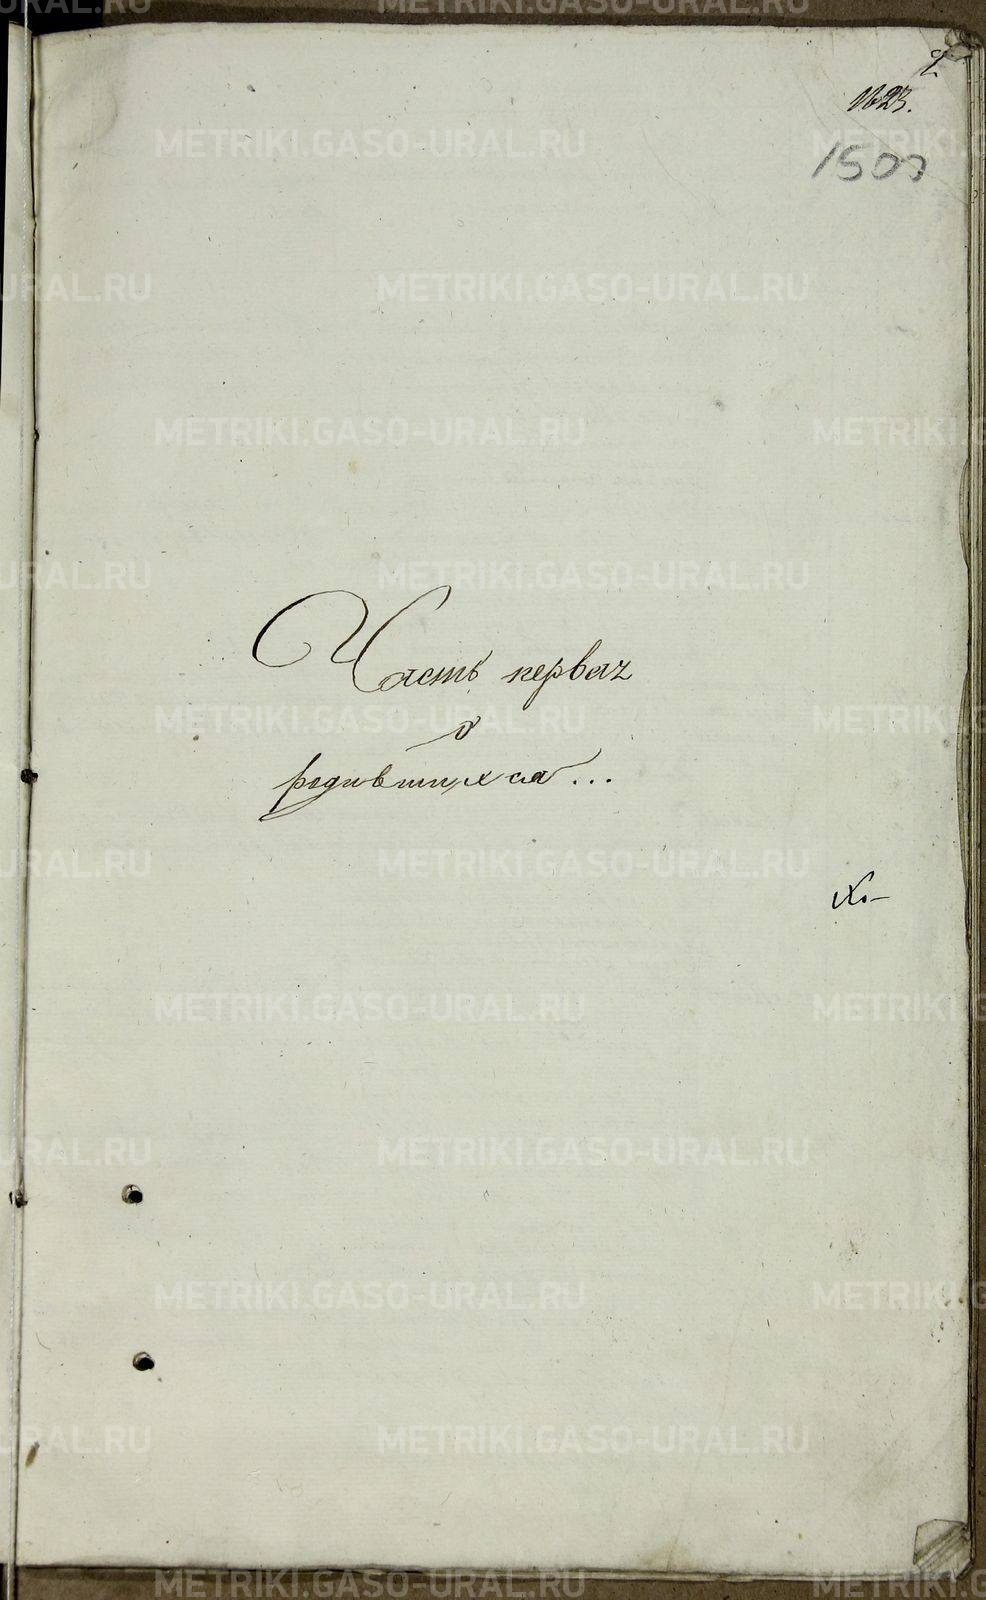 2
1623.
1500
Часть первая
о
родившихся...
METRIKI.GASO-URAL.RU